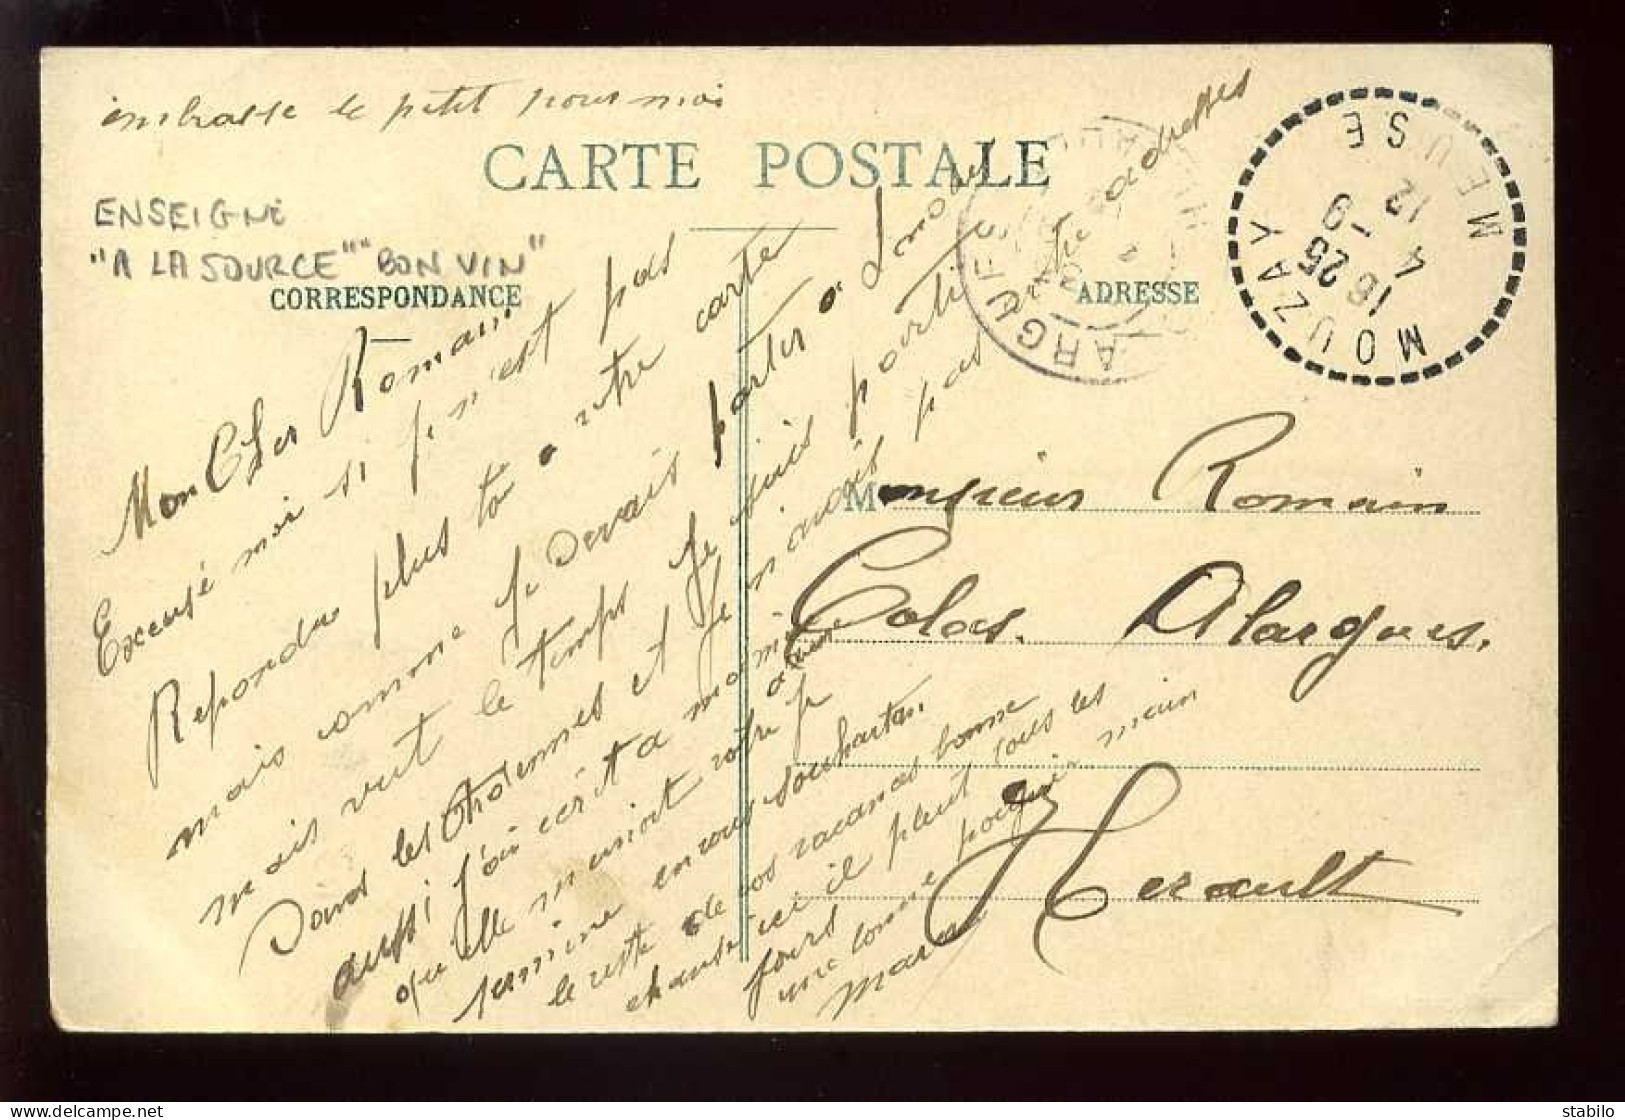 imbrasse le petit pour moi
CARTE POSTALE
ENSEIGNE
"A LA SOURCE" "BON VIN"
CORRESPONDANCE
ADRESSE
MOUZAY
MEUSE
16 25
4 -9
12
ARGU
Mon Cher Romain
Excusé moi si je n'est pas
Repondu plus to a votre carte
mais comme je devais partir a
mais vut le temps je suis partie
Dans les Ardennes et je n'avais pas votre adresses
aussi j'ai écrit a
qu'elle m'envoit votre
termine en vous souhaitan
le reste de vos vacances bonne
chance ici il pleut tous les
jours pognée main
une bonne
Monsieur Romain
Colas. Alargues.
Herault
stabilo